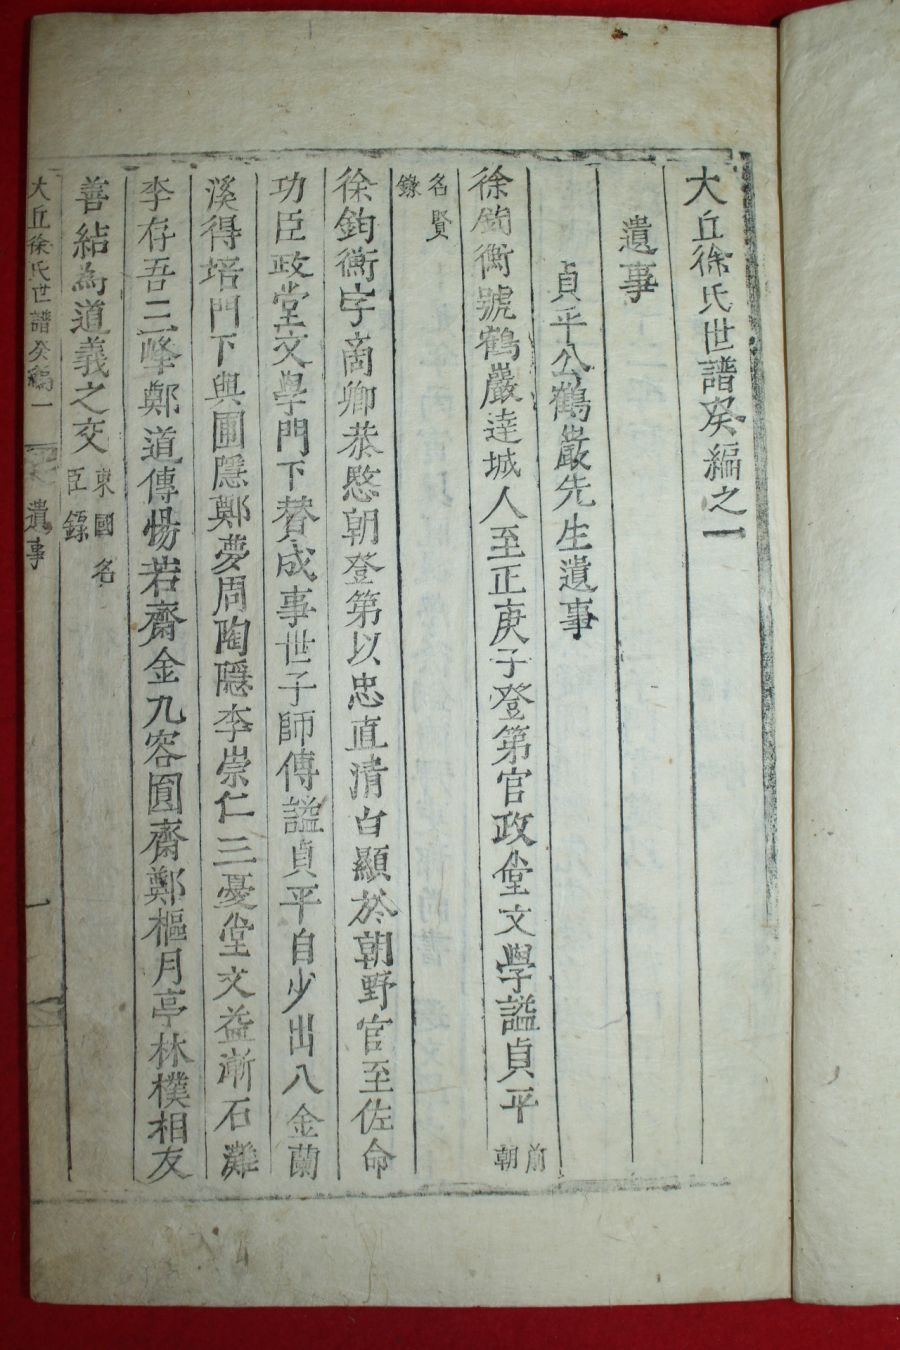 大丘徐氏世譜癸編之一
遺事
貞平公鶴巖先生遺事
徐鈞衡號鶴巖達城人至正庚子登第官政堂文學謚貞平前朝
名賢錄
徐鈞衡字商卿恭愍朝登第以忠直清白顯於朝野官至佐命
功臣政堂文學門下贊成事世子師傅謚貞平自少出入金蘭
溪得培門下與圃隱鄭夢周陶隱李崇仁三憂堂文益漸石灘
李存吾三峰鄭道傳惕若齋金九容圓齋鄭樞月亭林樸相友
善結爲道義之交東國名臣錄
大丘徐氏世譜癸編一
遺事
一